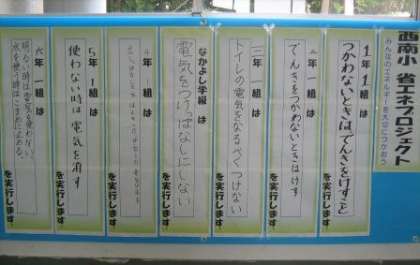 西南小 省エネプロジェクト
みんなのエネルギーを大切につかおう
1年1組は
つかわないときはでんきをけすこと
を実行します
二年 一組 は
でんきをつかわないときはけす
を実行します
三年 一組 は
トイレの電気をなるべくつけない
を実行します
年 1組 は
を実行します
なかよし学級 は
電気をつけっぱなしにしない
を実行します
5年 1組 は
使わない時は電気を消す
を実行します
六年 一組 は
明るい時は電気を使わない
水を使う時はこまめに止める。
を実行します